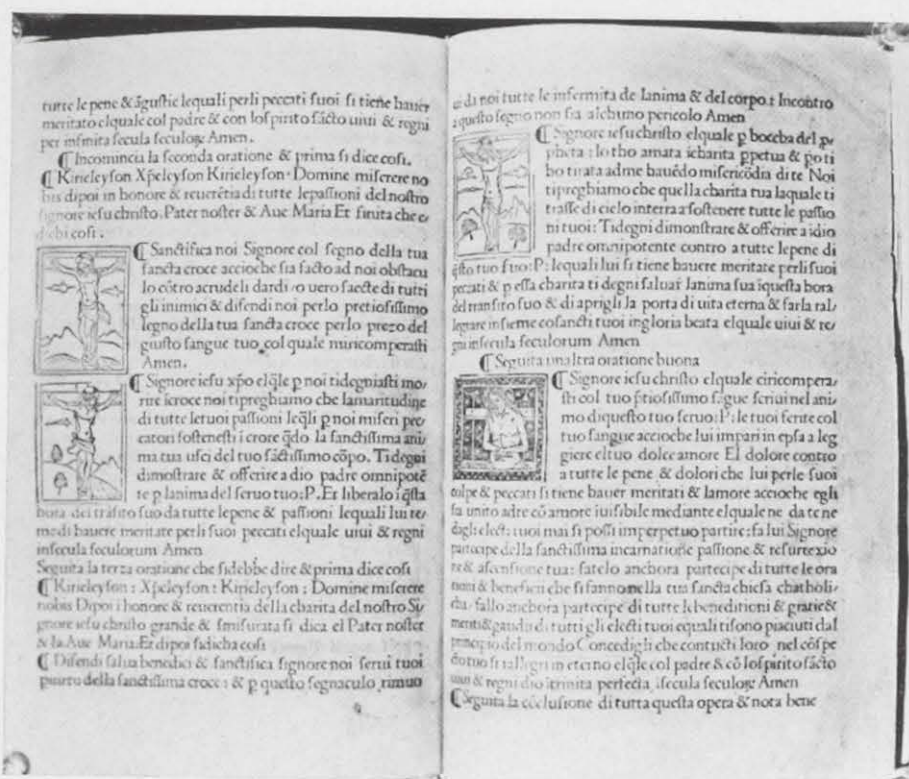 tutte le pene & āgustie lequali perli peccati suoi si tiene hauer
meritato elquale col padre & con lospirito sācto uiui & regni
per infinita secula seculoꝝ Amen.
¶ Incomincia la seconda oratione & prima si dice cosi.
¶ Kirieleyson Xp̄eleyson Kirieleyson. Domine miserere no
bis dipoi in honore & reuerētia di tutte lepassioni del nostro
signore iesu christo. Pater noster & Aue Maria Et finita che
dichi cosi.
¶ Sanctifica noi Signore col segno della tua
sancta croce accioche sia facto ad noi obstacu
lo cōtro acrudeli dardi o uero saecte di tutti
gli inimici & difendi noi perlo pretiosissimo
legno della tua sancta croce perlo prezo del
giusto sangue tuo col quale niricomperasti
Amen.
¶ Signore iesu xp̄o elq̄le p noi tidegniasti mo/
rire icroce noi tipreghiamo che lamaritudine
di tutte letuoi passioni leq̄li p noi miseri pec/
catori sostenesti i croce q̄do la sanctissima ani/
ma tua usci del tuo sāctissimo cōpo. Tidegni
dimostrare & offerire a dio padre omnipotē
te p lanima del seruo tuo: P. Et liberalo i q̄sta
hora del trāsito suo da tutte lepene & passioni lequali lui te/
me di hauere meritate perli suoi peccati elquale uiui & regni
insecula seculorum Amen
Seguita la terza oratione che sidebbe dire & prima dice cosi
¶ Kirieleyson: Xp̄eleyson: Kirieleyson: Domine miserere
nobis Dipoi i honore & reuerentia della charita del nostro Si/
gnore iesu christo grande & smisurata si dica el Pater noster
& la Aue Maria. Et dipoi sidicha cosi
¶ Difendi salua benedici & sanctifica signore noi serui tuoi
della sanctissima croce: & p questo segnaculo rimuo
ui da noi tutte le infermita de lanima & del corpo: Incontro
a questo segno non sia alchuno pericolo Amen
¶ Signore iesu christo elquale p boccha del p/
pheta: Io tho amata icharita ppetua & po ti
ho tirata adme hauēdo misericōdia di te Noi
tipreghiamo che quella charita tua laquale ti
trasse di cielo interra a sostenere tutte le passio
ni tuoi: Tidegni dimonstrare & offerire a idio
padre omnipotente contro a tutte lepene di
q̄sto tuo suo: P: lequali lui si tiene hauere meritate perli suoi
peccati & p essa charita ti degni saluar lanima sua iquesta hora
del transito suo & di aprigli la porta di uita eterna & farla ral/
legrare insieme cosancti tuoi ingloria beata elquale uiui & re/
gni insecula seculorum Amen
¶ Seguita unaltra oratione buona
¶ Signore iesu christo elquale ciricompera/
sti col tuo p̄tiosissimo sāgue scriui nel ani/
mo diquesto tuo seruo: P: le tuoi ferite col
tuo sangue accioche lui impari in epsa a leg
giere eltuo dolce amore El dolore contro
a tutte le pene & dolori che lui perle suoi
colpe & peccati si tiene hauer meritati & lamore accioche egli
sia unito adte cō amore iuisibile mediante elquale ne da te ne
dagli electi tuoi mai si possi imperpetuo partire: fa lui Signore
partecipe della sanctissima incarnatione passione & resurrexio
ne & ascensione tua: fatelo anchora partecipe di tutte le ora
tioni & beneficii che si fanno nella tua sancta chiesa chatholi/
cha: fallo anchora partecipe di tutte le beneditioni & gratie &
meriti & gaudii di tutti gli electi tuoi equali tisono piaciuti dal
principio del mondo Concedigli che contucti loro nel cōspe
cto tuo si rallegri in eterno elq̄le col padre & cō lospirito sācto
uiui & regni dio itrinita perfecta isecula seculoꝝ Amen
¶ Seguita la cōclusione di tutta questa opera & nota bene